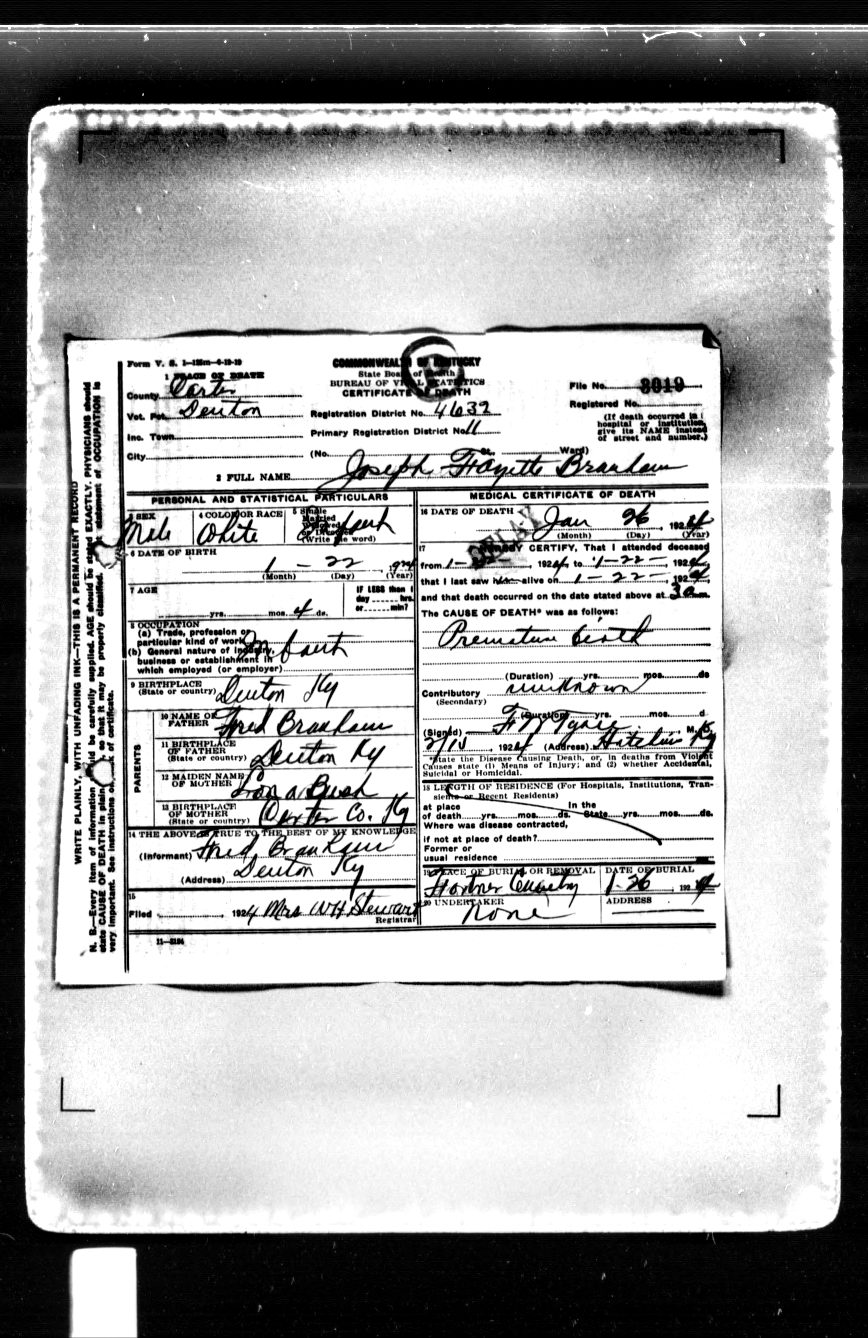 Form V. S. 1—125m—6-19-19
1 PLACE OF DEATH
County Carter
Vot. Pct. Denton
Inc. Town
City
COMMONWEALTH OF KENTUCKY
State Board of Health
BUREAU OF VITAL STATISTICS
CERTIFICATE OF DEATH
Registration District No. 4632
Primary Registration District No. 11
(No. St. Ward)
File No. 3019
Registered No.
(If death occurred in
hospital or institution,
give its NAME instead
of street and number.)
2 FULL NAME Joseph Fayette Branham
PERSONAL AND STATISTICAL PARTICULARS
3 SEX
Male
4 COLOR OR RACE
White
5 Single
Married
Widowed
or Divorced
(Write the word)
Infant
6 DATE OF BIRTH
1 - 22 1924
(Month) (Day) (Year)
7 AGE
yrs. mos. 4 ds.
IF LESS than 1
day hrs.
or min?
8 OCCUPATION
(a) Trade, profession or
particular kind of work
(b) General nature of industry,
business or establishment in
which employed (or employer)
Infant
9 BIRTHPLACE
(State or country) Denton Ky
PARENTS
10 NAME OF
FATHER Fred Branham
11 BIRTHPLACE
OF FATHER
(State or country) Denton Ky
12 MAIDEN NAME
OF MOTHER Bush
13 BIRTHPLACE
OF MOTHER
(State or country) Carter Co. Ky
14 THE ABOVE IS TRUE TO THE BEST OF MY KNOWLEDGE
(Informant) Fred Branham
(Address) Denton Ky
15
Filed 1924 Mrs WH Stewart
Registrar
11—3184
MEDICAL CERTIFICATE OF DEATH
16 DATE OF DEATH Jan 26 1924
(Month) (Day) (Year)
DELAY
17 I HEREBY CERTIFY, That I attended deceased
from 1-22 1924 to 1-22- 1924
that I last saw him alive on 1-22- 1924
and that death occurred on the date stated above at 3 a m.
The CAUSE OF DEATH* was as follows:
Premature birth
(Duration) yrs. mos. ds
Contributory unknown
(Secondary)
(Duration) yrs. mos. d
(Signed) M.D.
2/15, 1924 (Address) Hitchins Ky
*State the Disease Causing Death, or, in deaths from Violent
Causes state (1) Means of Injury; and (2) whether Accidental,
Suicidal or Homicidal.
18 LENGTH OF RESIDENCE (For Hospitals, Institutions, Tran-
sients or Recent Residents)
at place In the
of death yrs. mos. ds. State yrs. mos. ds.
Where was disease contracted,
if not at place of death?
Former or
usual residence
19 PLACE OF BURIAL OR REMOVAL
DATE OF BURIAL
1-26 1924
20 UNDERTAKER
None
ADDRESS
WRITE PLAINLY, WITH UNFADING INK—THIS IS A PERMANENT RECORD
N. B.—Every item of information should be carefully supplied. AGE should be stated EXACTLY. PHYSICIANS should
state CAUSE OF DEATH in plain so that it may be properly classified. statement of OCCUPATION is
very important. See instructions on back of certificate.